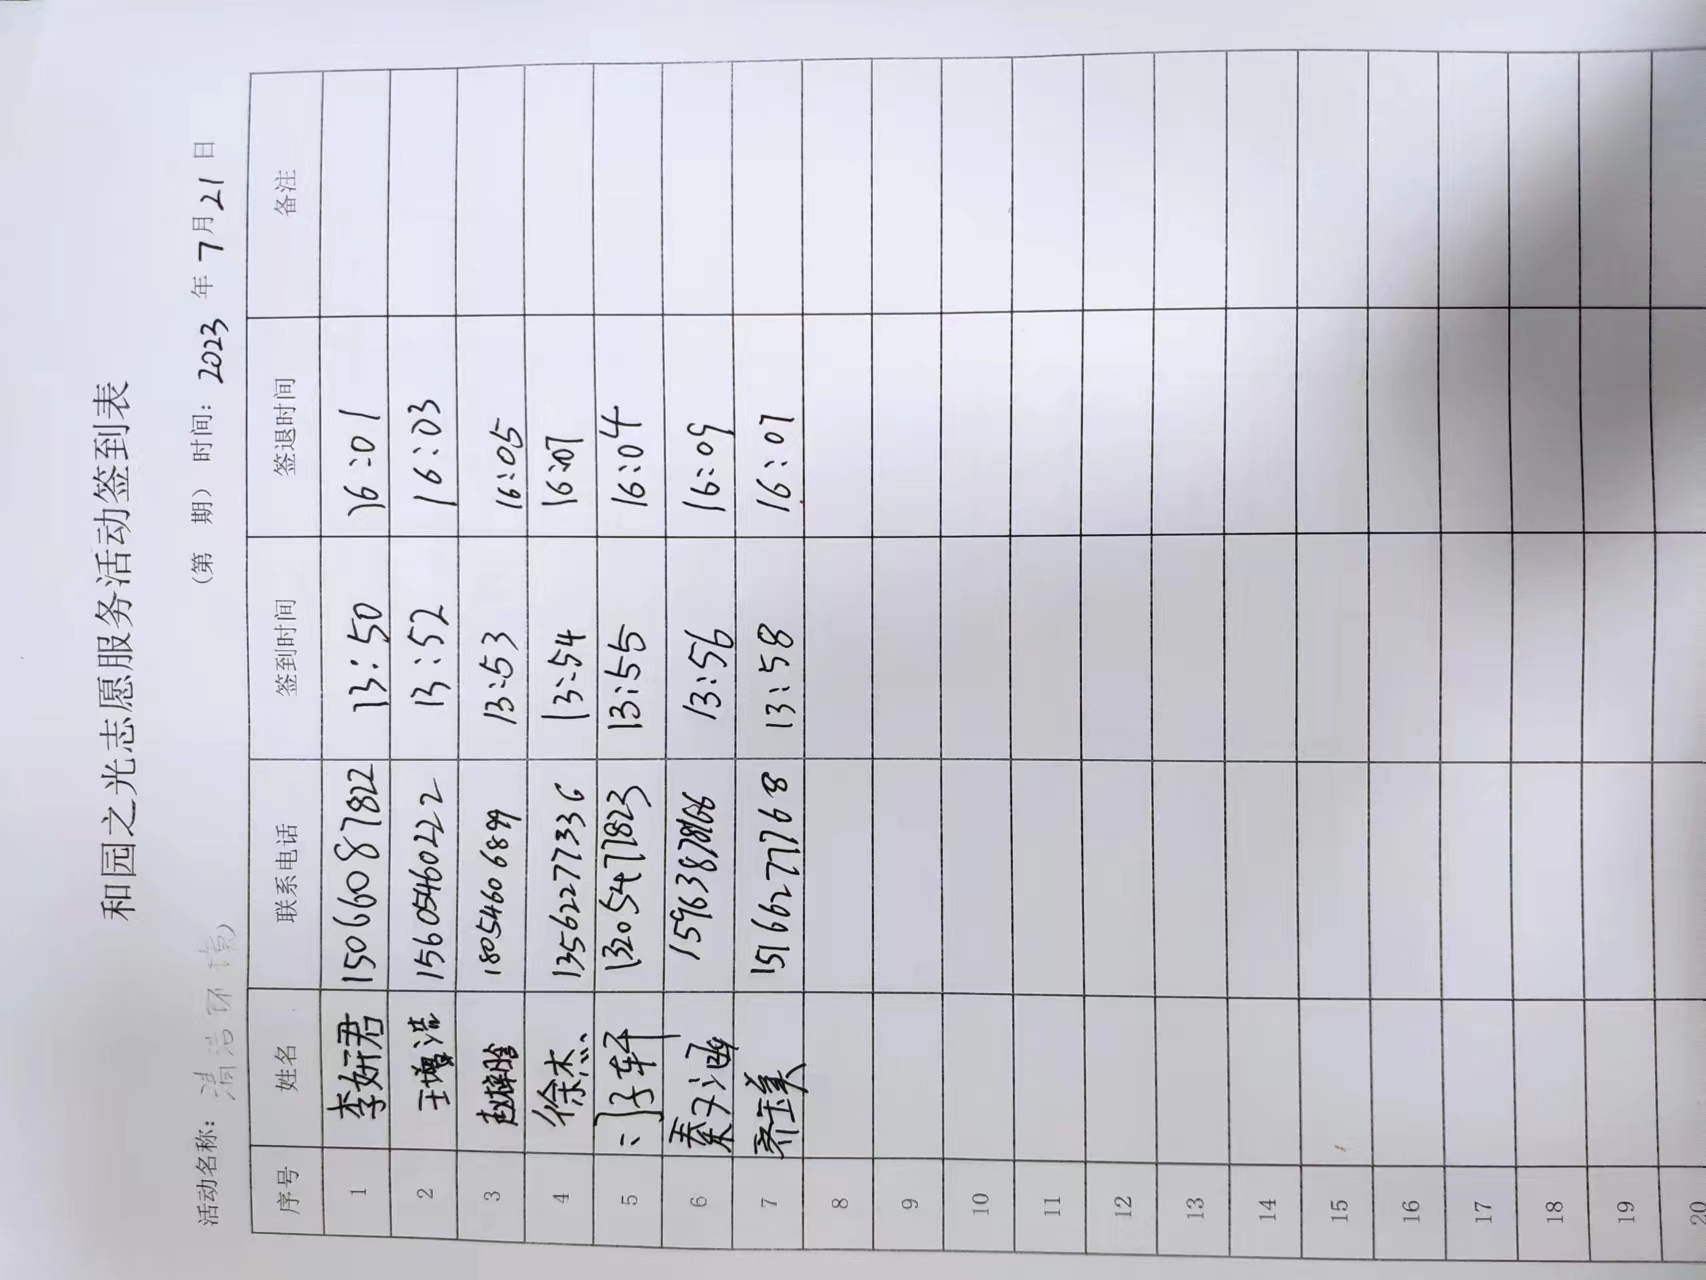 和园之光志愿服务活动签到表
活动名称：清洁环境 （第 期）时间：2023 年 7 月 21 日
序号 姓名 联系电话 签到时间 签退时间 备注
1 李妍君 15066087822 13:50 16:01
2 王增浩 15605460222 13:52 16:03
3 赵梓晗 18054606899 13:53 16:05
4 徐杰 13562277336 13:54 16:07
5 子轩 13205471823 13:55 16:04
6 秦文涵 13:56 16:09
7 乔玉美 15166277768 13:58 16:07
8
9
10
11
12
13
14
15
16
17
18
19
20